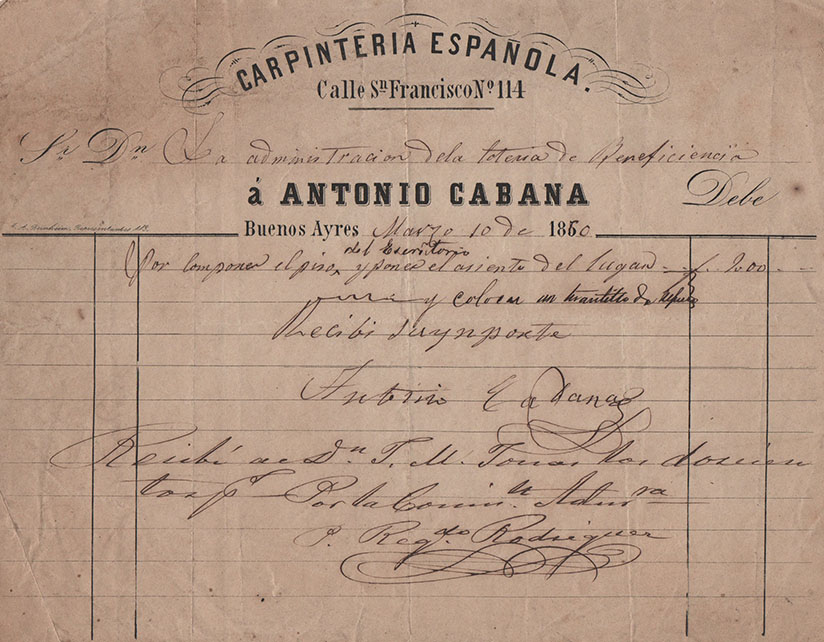 CARPINTERIA ESPAÑOLA.
Calle Sn Francisco No 114
Sr Dn La administracion dela loteria de Beneficiencia
á ANTONIO CABANA Debe
Buenos Ayres Marzo 10 de 1860
del Escritorio
Por componer el piso y poner el asiento del lugar 200
y colocar un
Recibi suynporte
Antonio Cabana
Recibí de Dn T. M. los doscien
tos ps Por la Comisn
P. Rodriguez